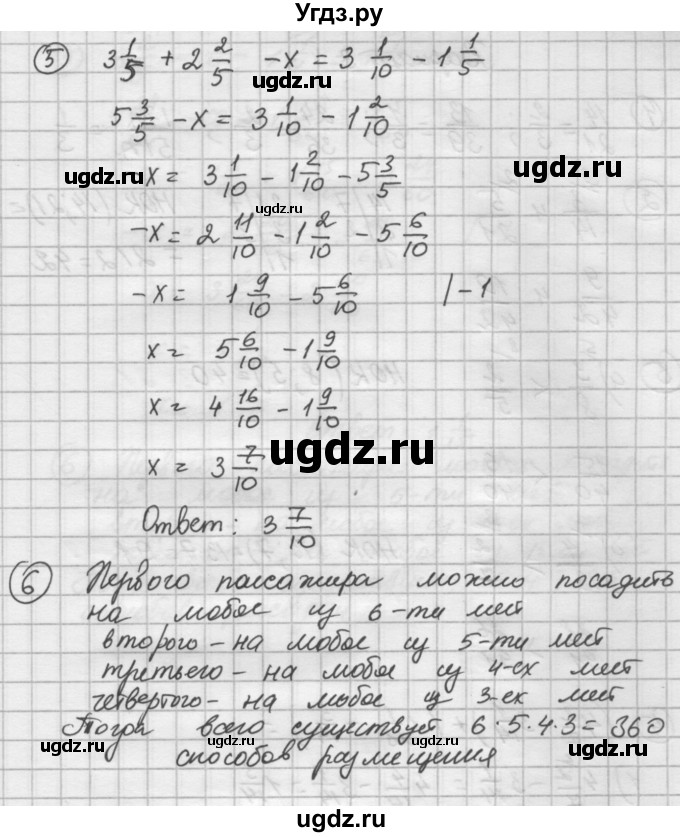 Угдз.ру
⑤ 3 1/5 + 2 2/5 - x = 3 1/10 - 1 1/5
ugdz.ru
5 3/5 - x = 3 1/10 - 1 2/10
ugdz.ru
ugdz.ru
-x = 3 1/10 - 1 2/10 - 5 3/5
ugdz.ru
-x = 2 11/10 - 1 2/10 - 5 6/10
-x = 1 9/10 - 5 6/10 | -1
x = 5 6/10 - 1 9/10
x = 4 16/10 - 1 9/10
ugdz.ru
x = 3 7/10
Ответ: 3 7/10
⑥ Первого пассажира можно посадить
на любое из 6-ти мест
второго - на любое из 5-ти мест
третьего - на любое из 4-ех мест
четвертого - на любое из 3-ех мест
Тогда всего существует 6·5·4·3 = 360
ugdz.ru
ugdz.ru
способов размещения
ugdz.ru